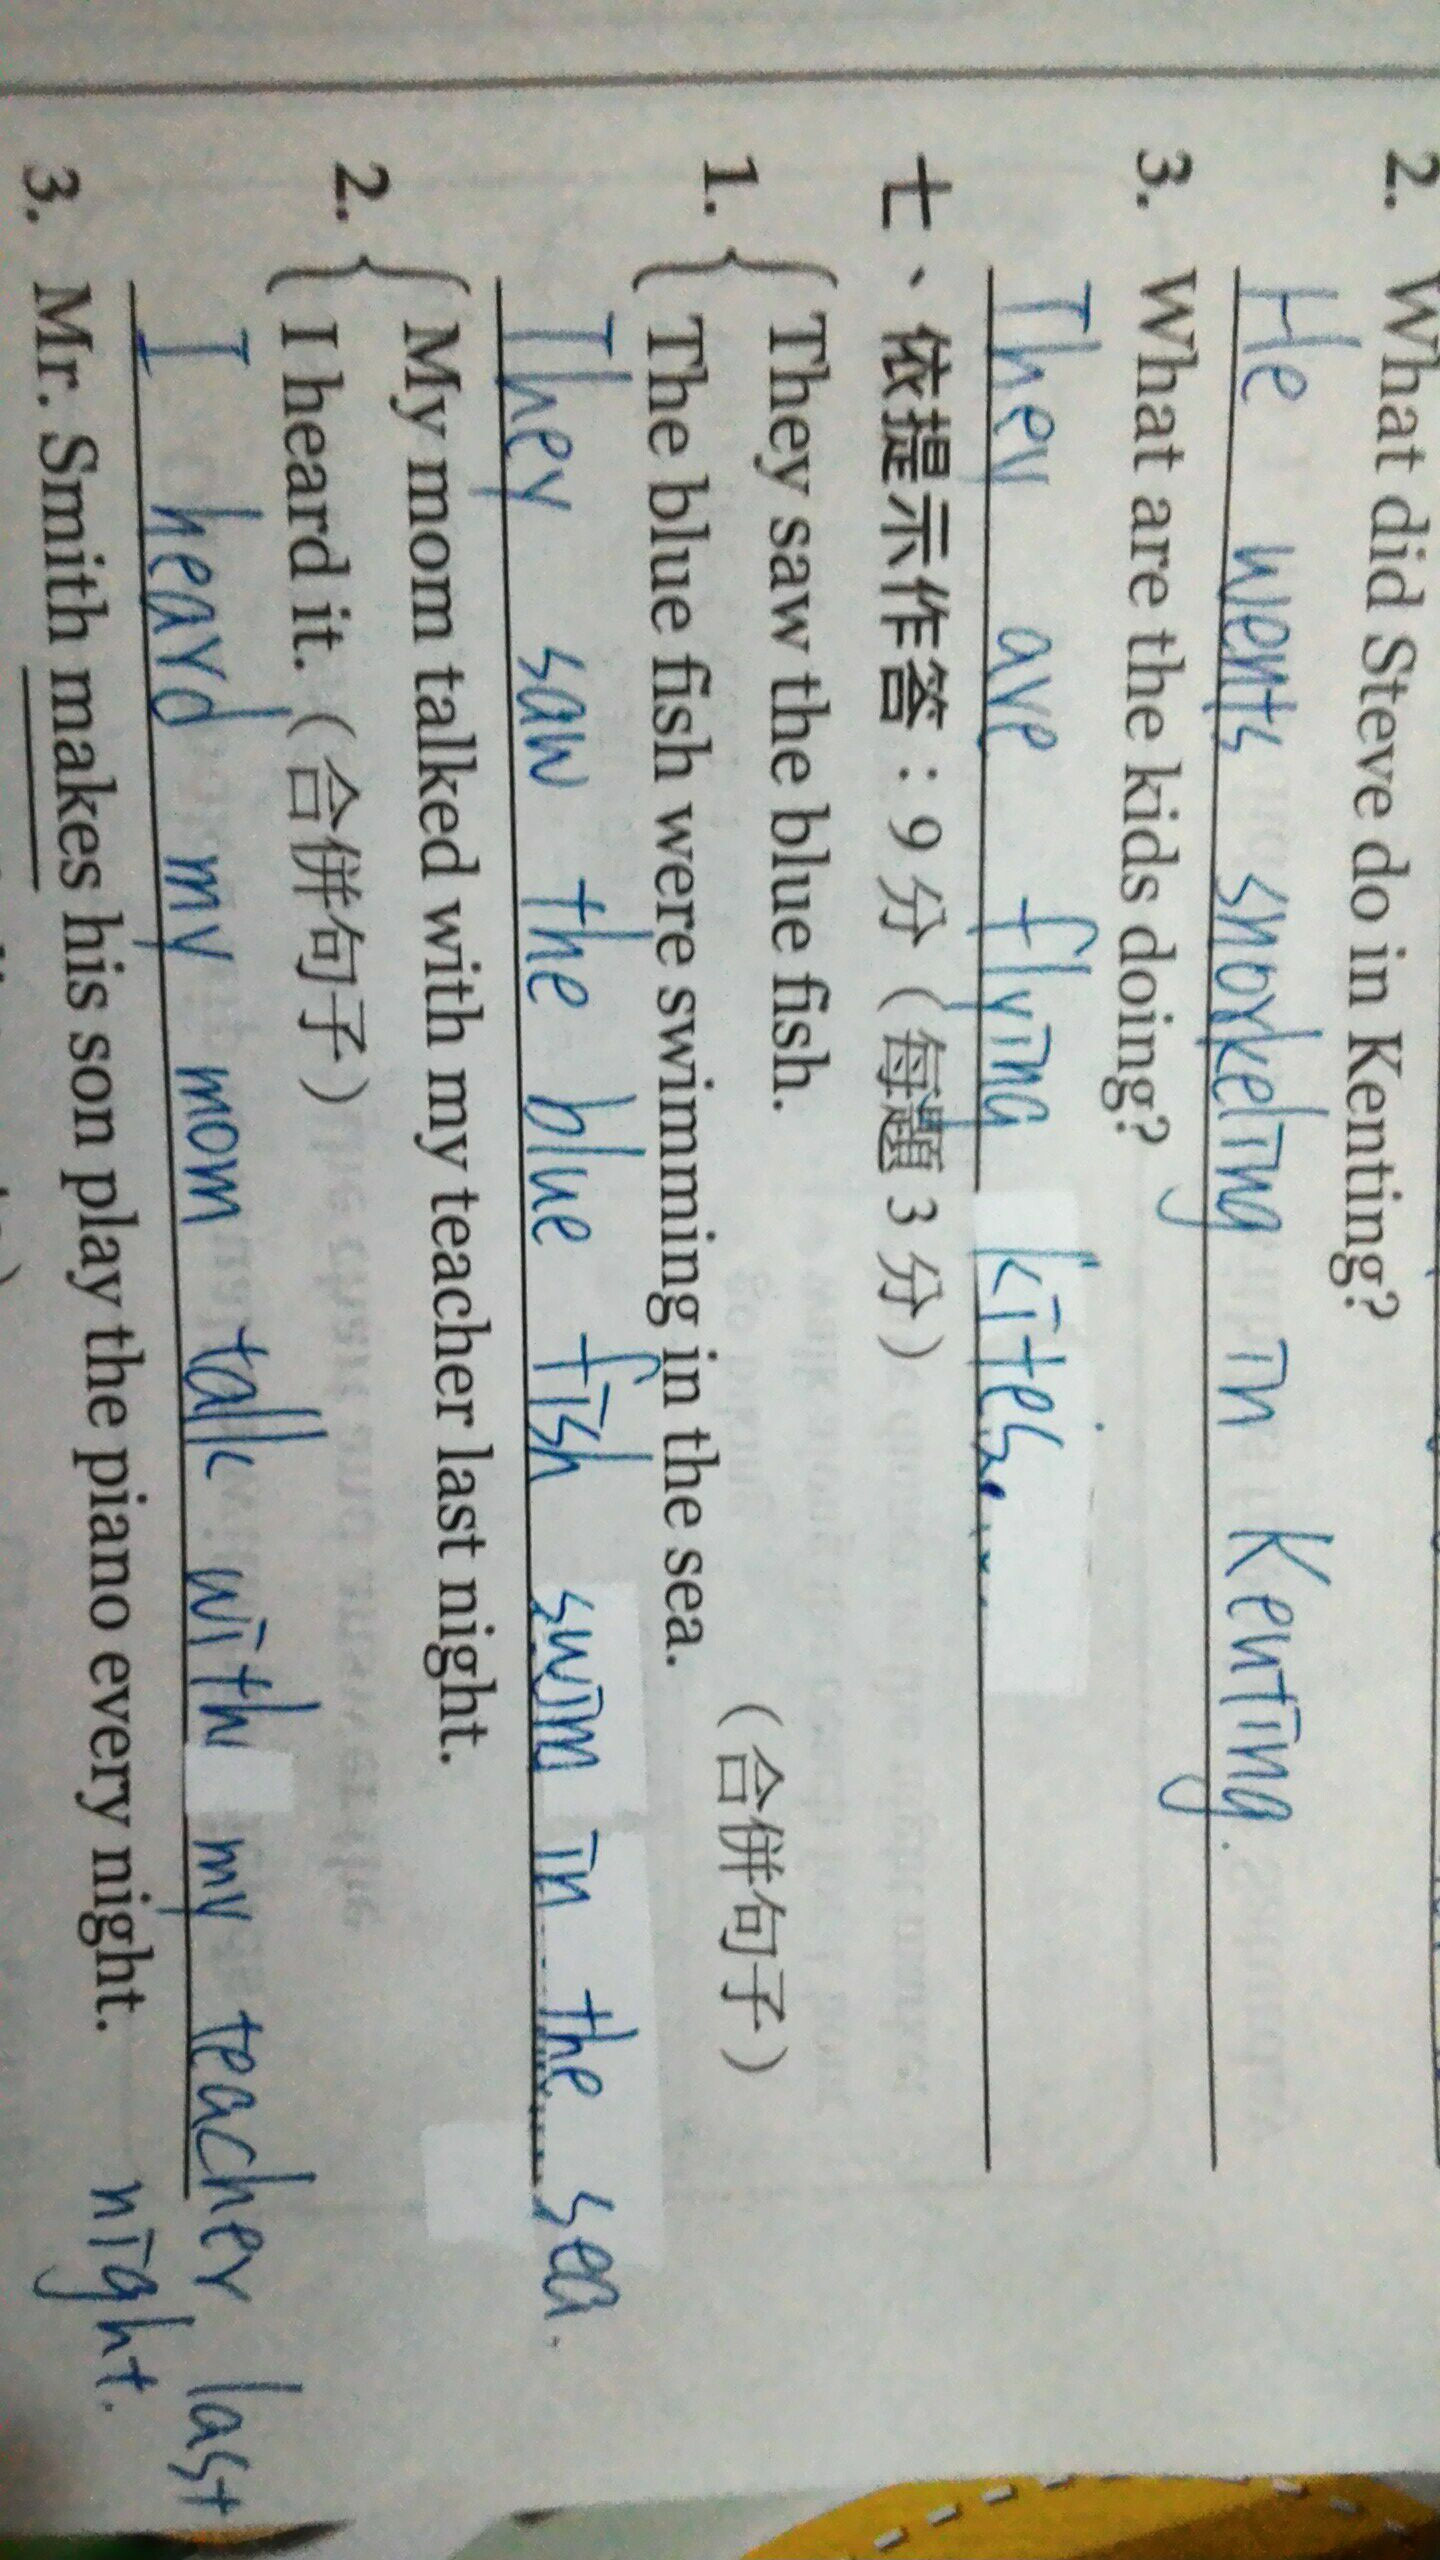 2. What did Steve do in Kenting?
He wents snorkeling in Kenting.
3. What are the kids doing?
They are flying kites.
七、依提示作答：9分（每題3分）
1. They saw the blue fish.
The blue fish were swimming in the sea. （合併句子）
They saw the blue fish swim in the sea.
2. My mom talked with my teacher last night.
I heard it.（合併句子）
I heard my mom talk with my teacher last
night.
3. Mr. Smith makes his son play the piano every night.